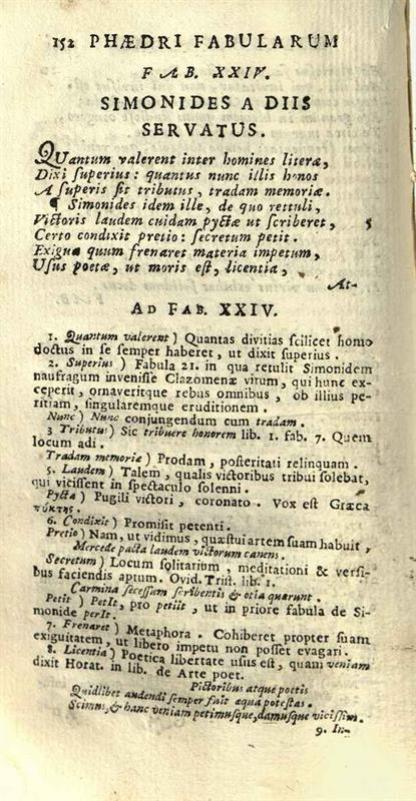 152 PHÆDRI FABULARUM
FAB. XXIV.
SIMONIDES A DIIS
SERVATUS.
QUantum valerent inter homines literæ,
Dixi superius: quantus nunc illis honos
A superis sit tributus, tradam memoriæ.
¶ Simonides idem ille, de quo rettuli,
Victoris laudem cuidam pyctæ ut scriberet, 5
Certo condixit pretio: secretum petit.
Exigua quum frenaret materia impetum,
Usus poetæ, ut moris est, licentia,
At-
AD FAB. XXIV.
1. Quantum valerent) Quantas divitias scilicet homo
doctus in se semper haberet, ut dixit superius.
2. Superius) Fabula 21. in qua retulit Simonidem
naufragum invenisse Clazomenæ virum, qui hunc ex-
ceperit, ornaveritque rebus omnibus, ob illius pe-
ritiam, singularemque eruditionem.
Nunc) Nunc conjungendum cum tradam.
3 Tributus) Sic tribuere honorem lib. 1. fab. 7. Quem
locum adi.
Tradam memoriæ) Prodam, posteritati relinquam.
5. Laudem) Talem, qualis victoribus tribui solebat,
qui vicissent in spectaculo solenni.
Pyctæ) Pugili victori, coronato. Vox est Græca
πύκτης.
6. Condixit) Promisit petenti.
Pretio) Nam, ut vidimus, quæstui artem suam habuit,
Mercede pacta laudem victorum canens.
Secretum) Locum solitarium, meditationi & versi-
bus faciendis aptum. Ovid. Trist. lib. 1.
Carmina secessum scribentis & otia quærunt.
Petit) Petît, pro petiit, ut in priore fabula de Si-
monide perît.
7. Frenaret) Metaphora. Cohiberet propter suam
exiguitatem, ut libero impetu non posset evagari.
8. Licentia) Poetica libertate usus est, quam veniam
dixit Horat. in lib. de Arte poet.
Pictoribus atque poetis
Quidlibet audendi semper fuit æqua potestas.
Scimus, & hanc veniam petimusque, damusque vicissim.
9. In-